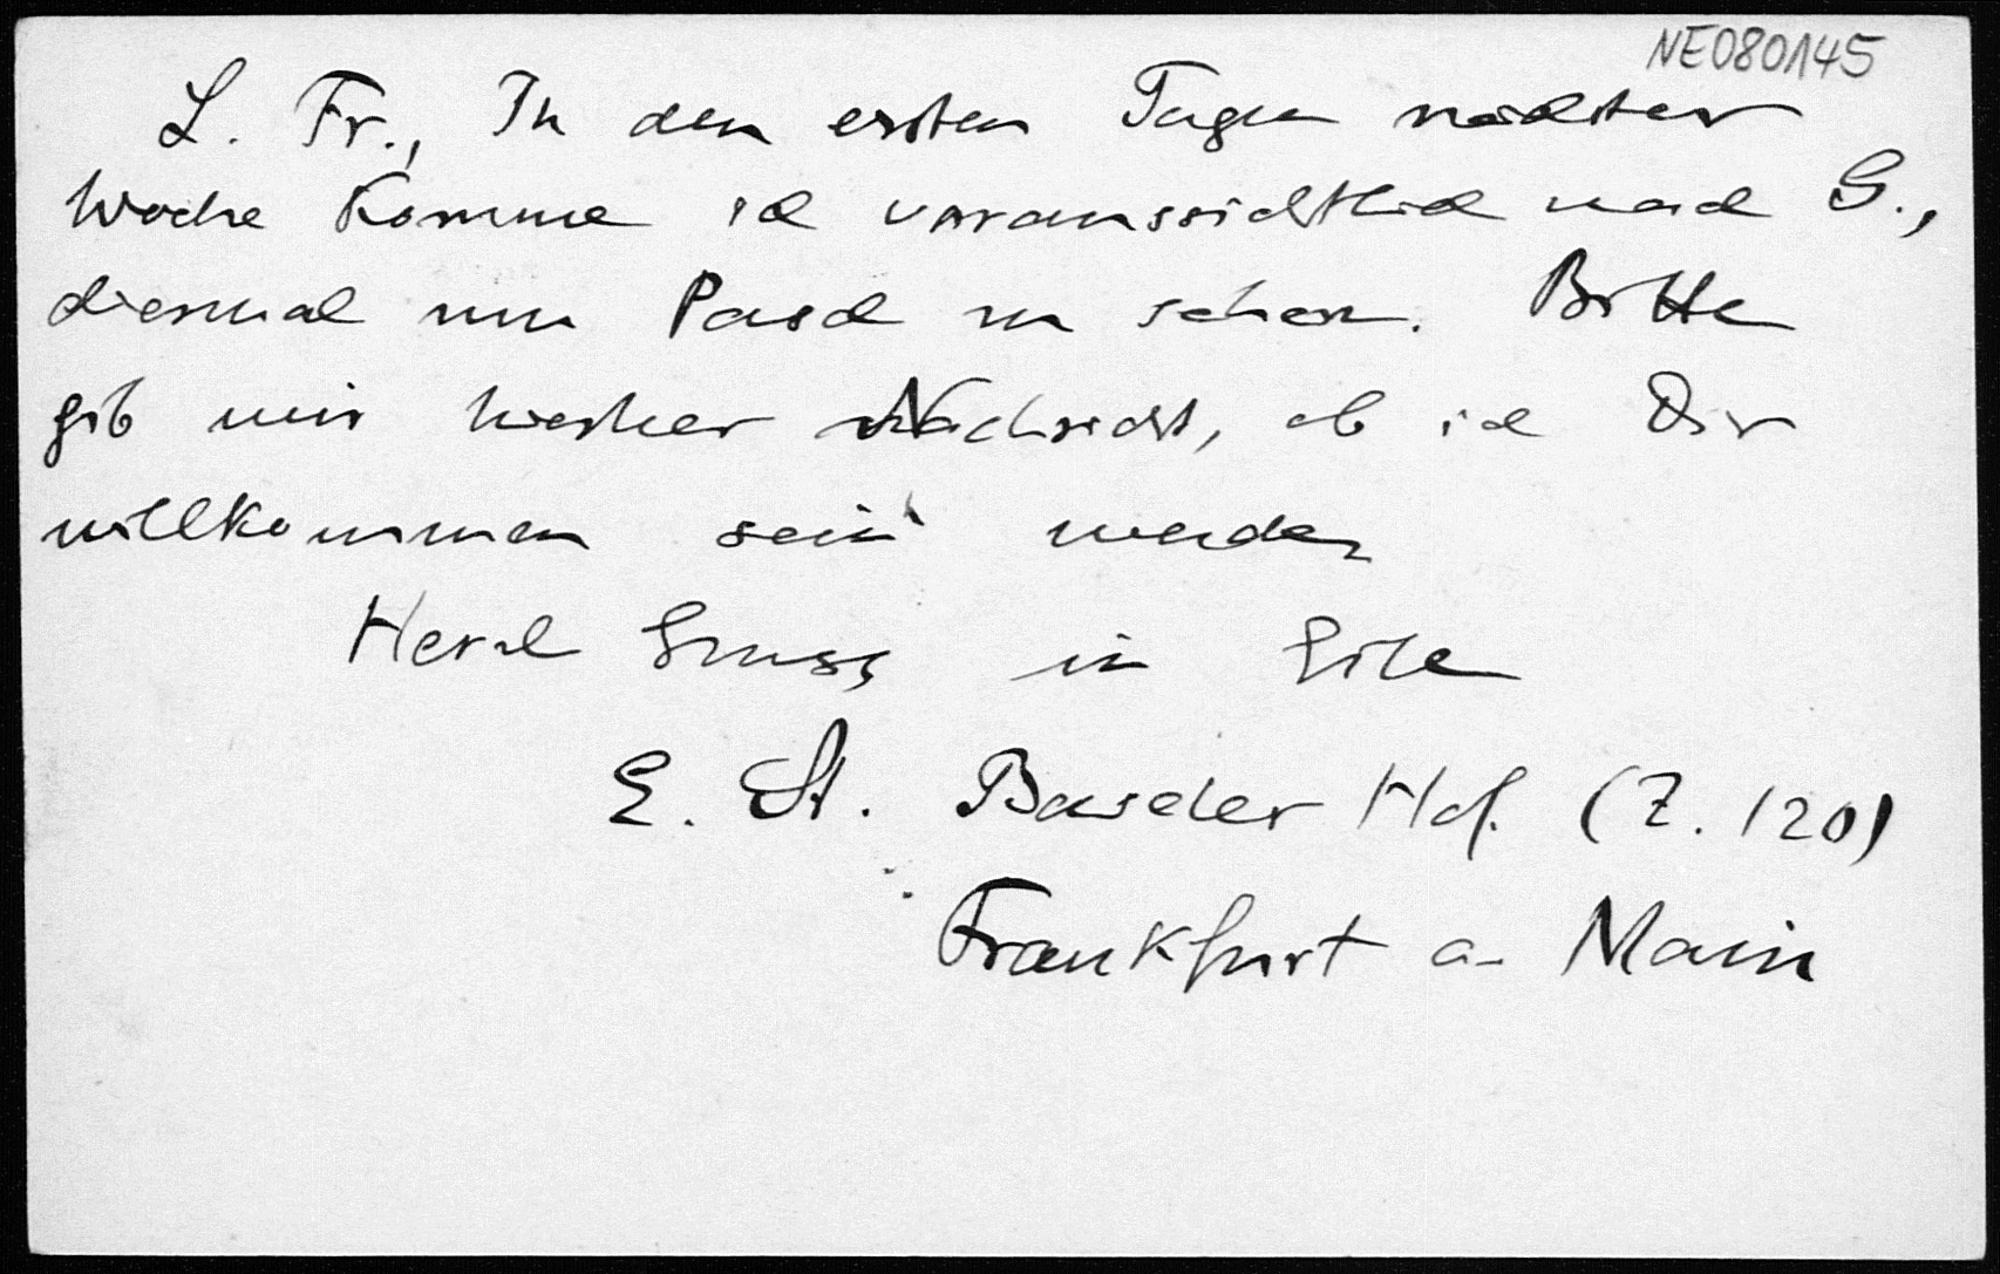 NE080145
L. Fr., In den ersten Tagen nächster
Woche komme ich voraussichtlich nach G.,
diesmal um Pasch zu sehen. Bitte
gib mir hierher Nachricht, ob ich Dir
willkommen sein werde
Herzl Gruss in Eile
E. St. Baseler Hof. (Z. 120)
Frankfurt a. Main